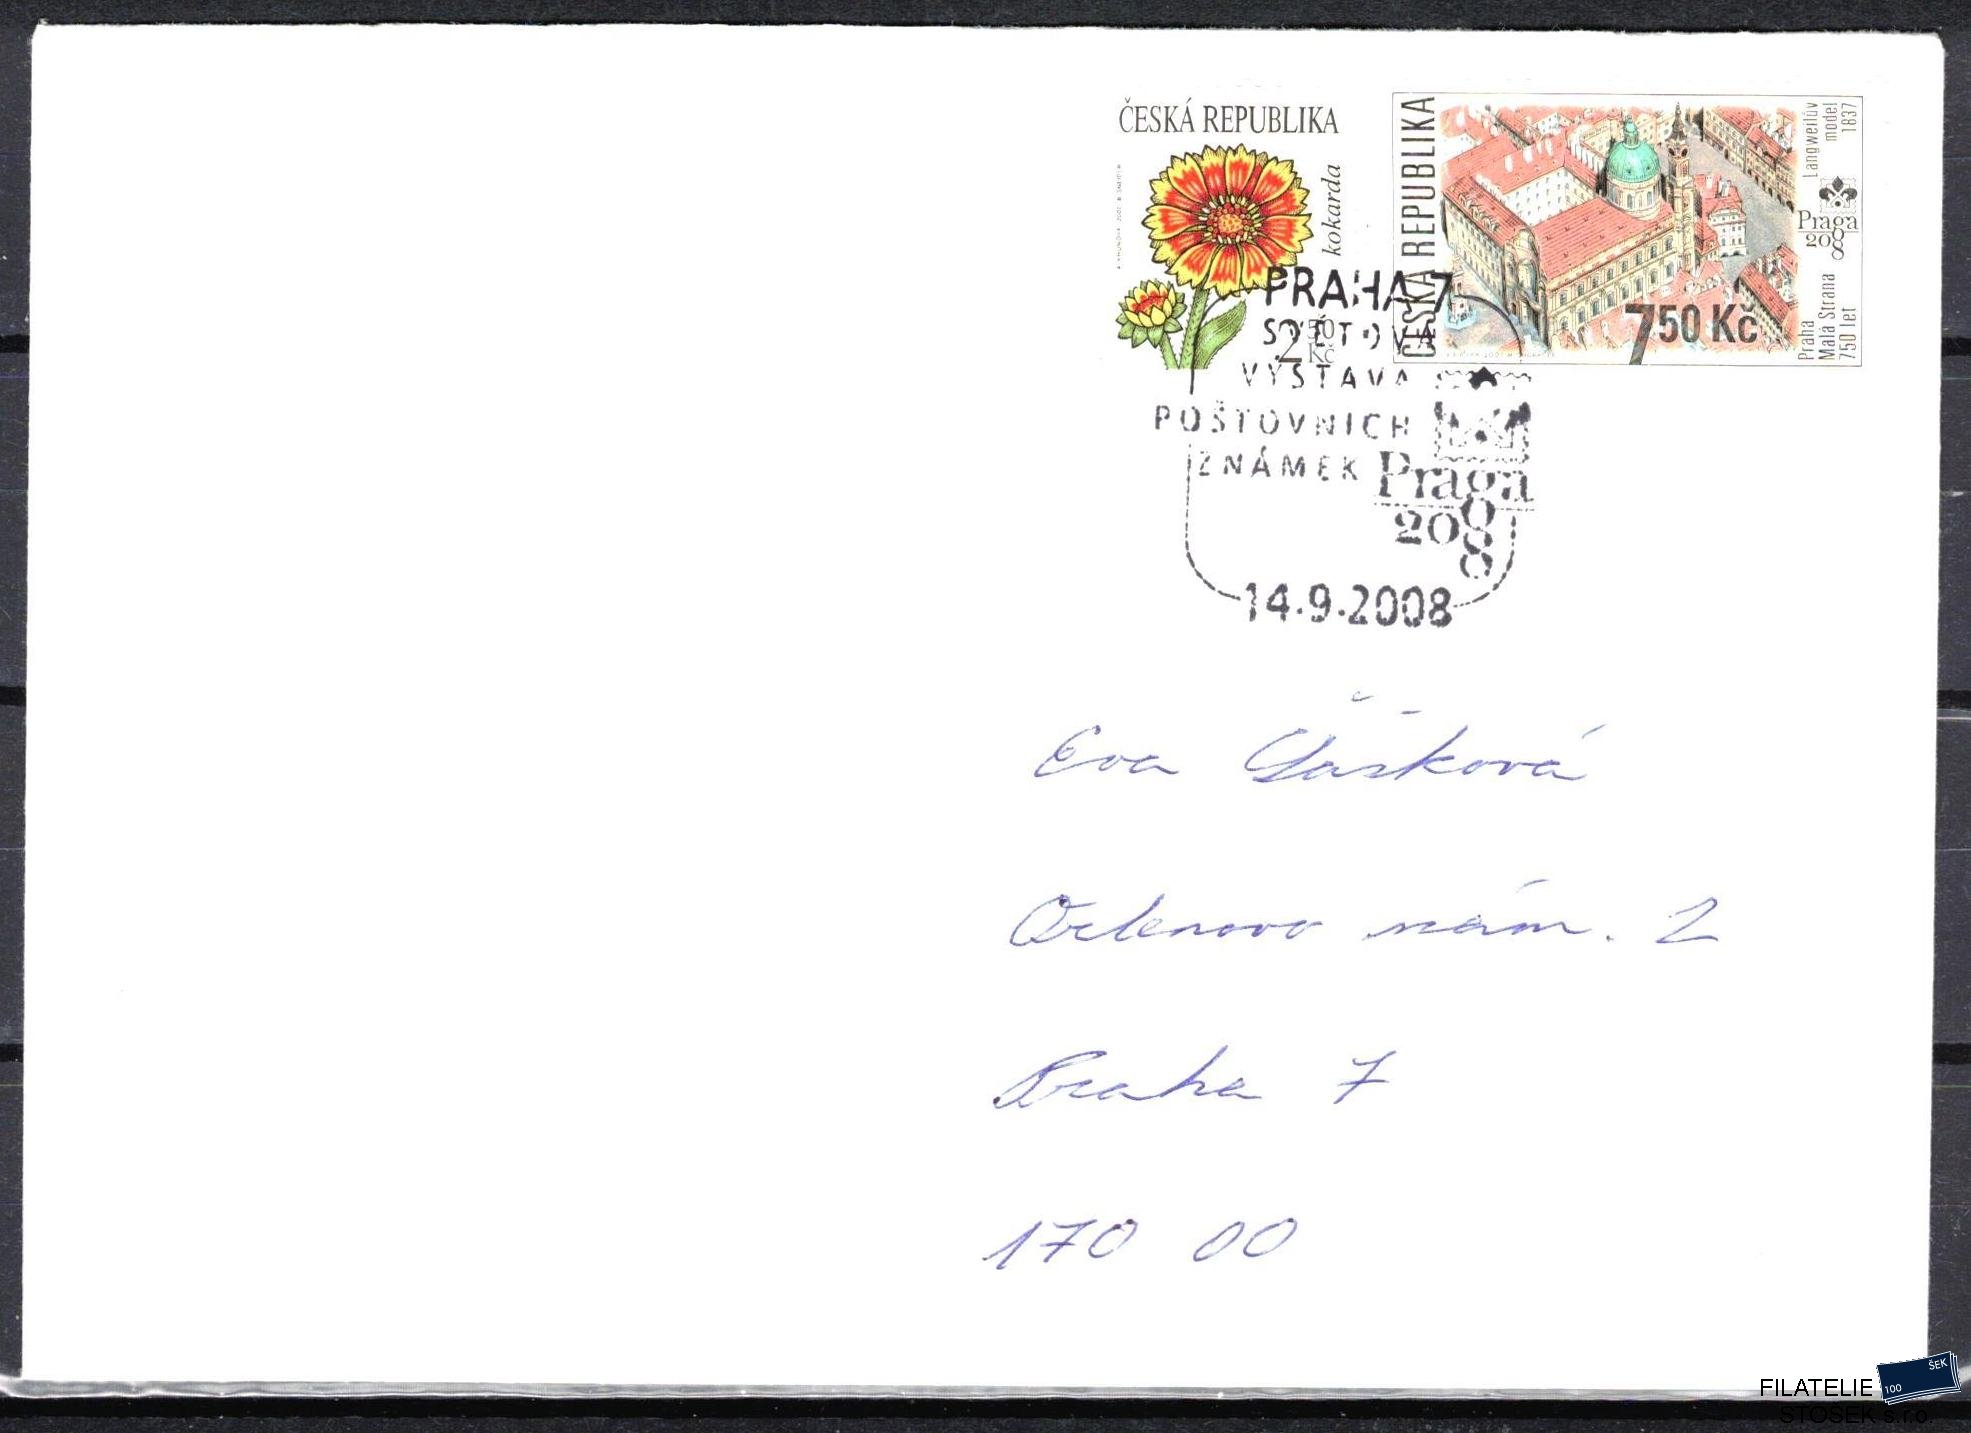 ČESKÁ REPUBLIKA
kokarda
2 50 Kč
ČESKÁ REPUBLIKA
ČESKÁ REPUBLIKA
Langweilův
model
1837
Praga
2008
Praha
Malá Strana
750 let
7 50 Kč
PRAHA 7
SVĚTOVÁ
VÝSTAVA
POŠTOVNÍCH
ZNÁMEK
Praga
2008
14.9.2008
Eva
Ortenovo nám. 2
Praha 7
170 00
ŠEK
100
FILATELIE
STOSEK s.r.o.